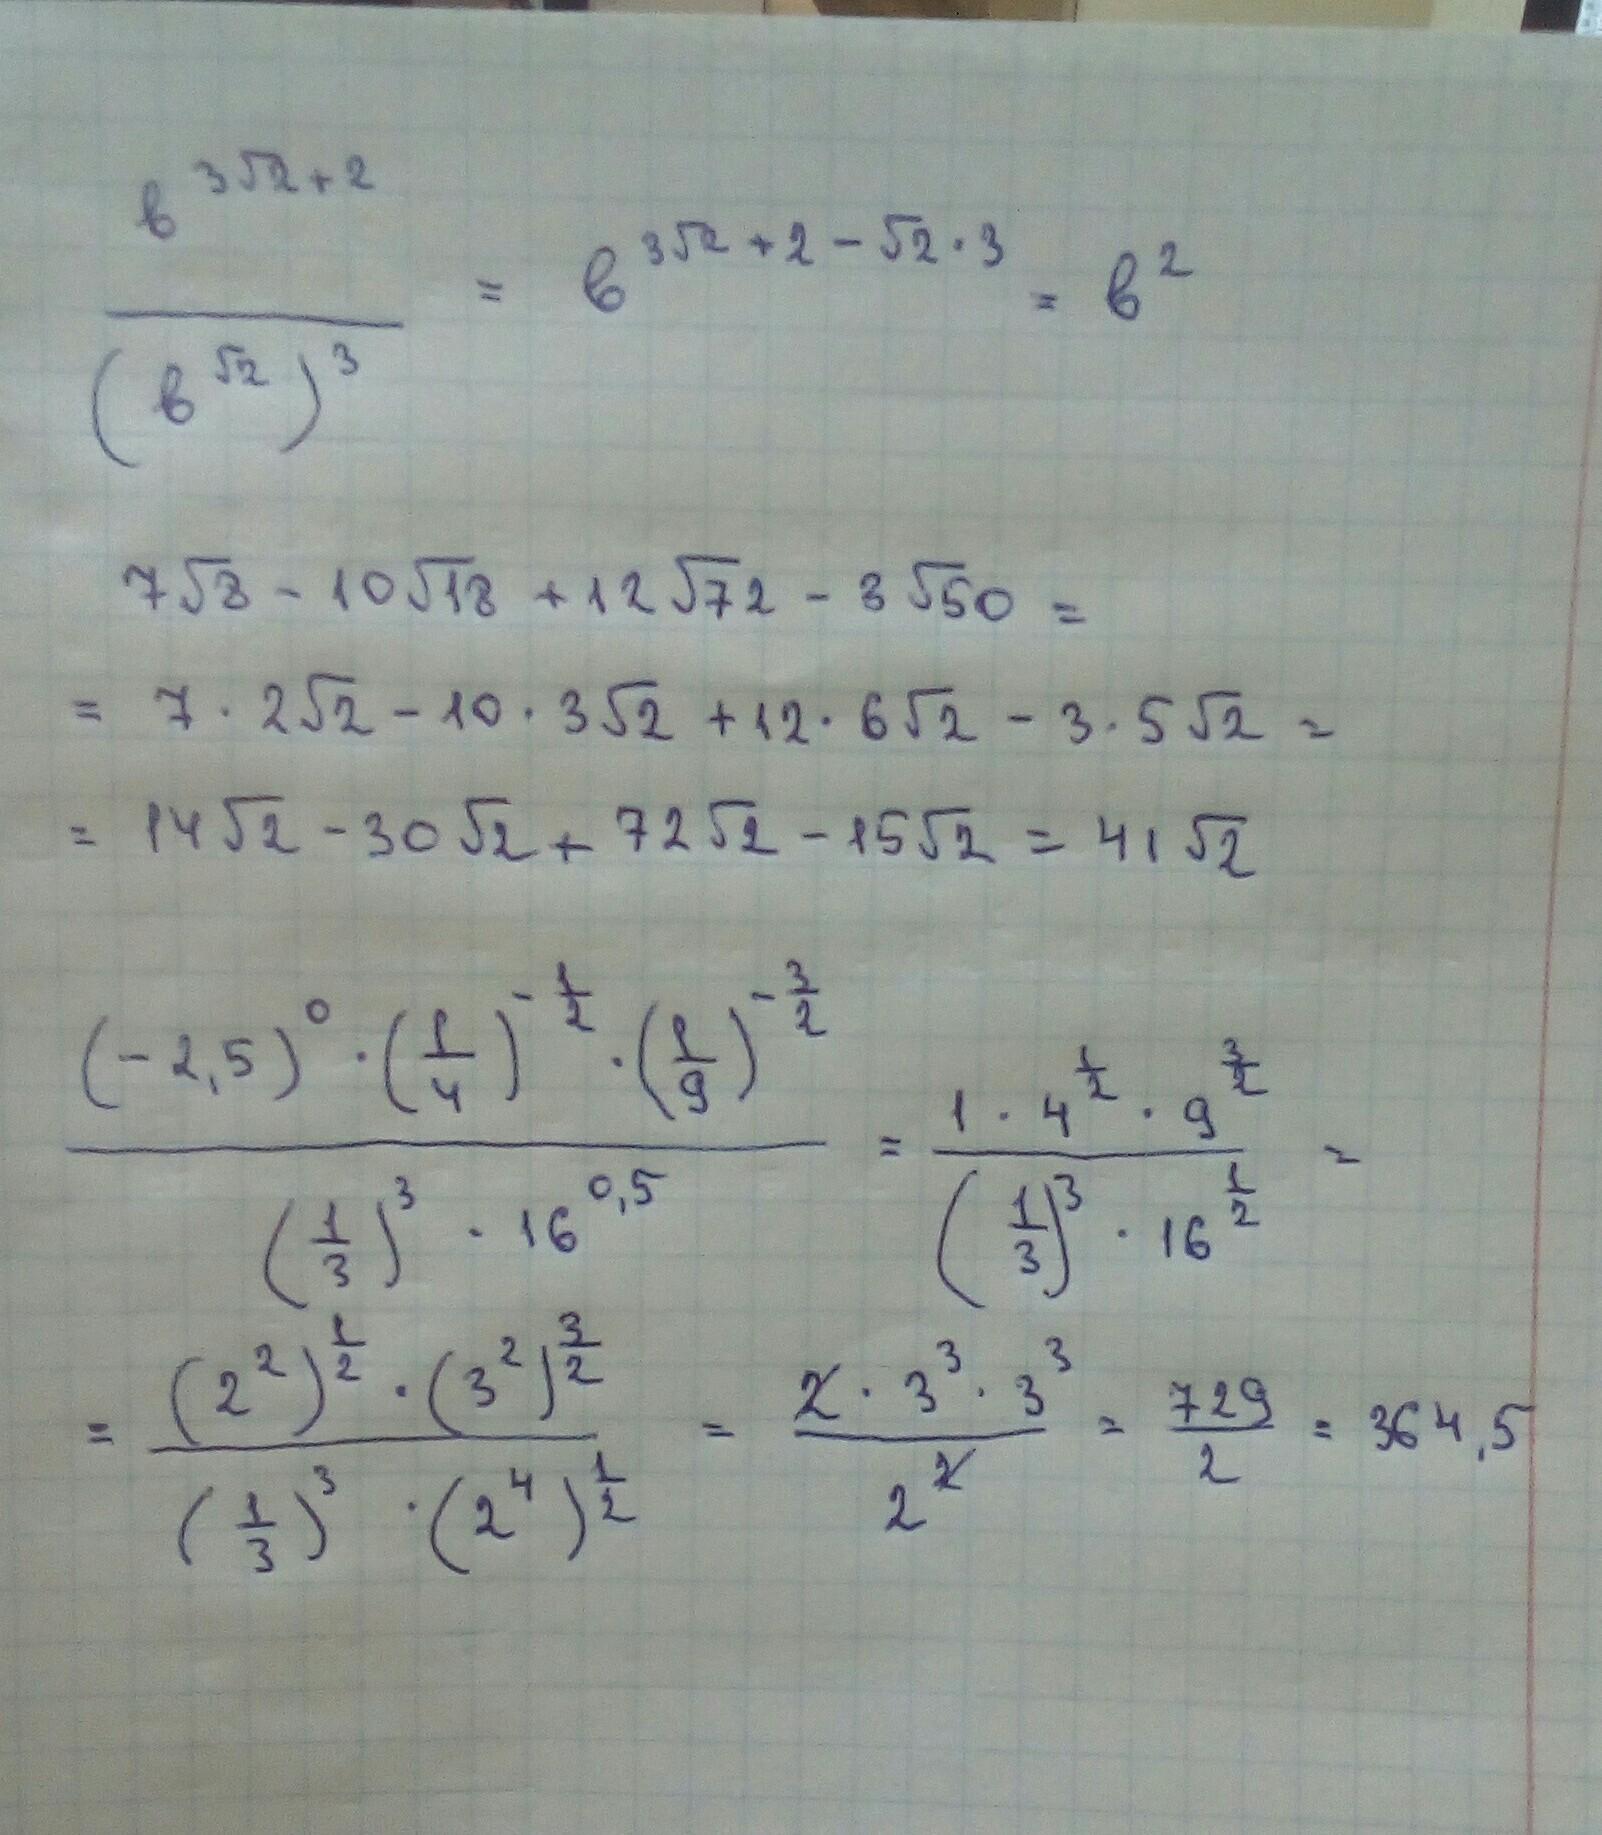 в^(3√2+2) / (в^√2)^3 = в^(3√2+2-√2·3) = в^2
7√8 - 10√18 + 12√72 - 3√50 =
= 7·2√2 - 10·3√2 + 12·6√2 - 3·5√2 =
= 14√2 - 30√2 + 72√2 - 15√2 = 41√2
((-2,5)^0 · (1/4)^(-1/2) · (1/9)^(-3/2)) / ((1/3)^3 · 16^(0,5)) = (1 · 4^(1/2) · 9^(3/2)) / ((1/3)^3 · 16^(1/2)) =
= ((2^2)^(1/2) · (3^2)^(3/2)) / ((1/3)^3 · (2^4)^(1/2)) = (2 · 3^3 · 3^3) / 2^2 = 729/2 = 364,5